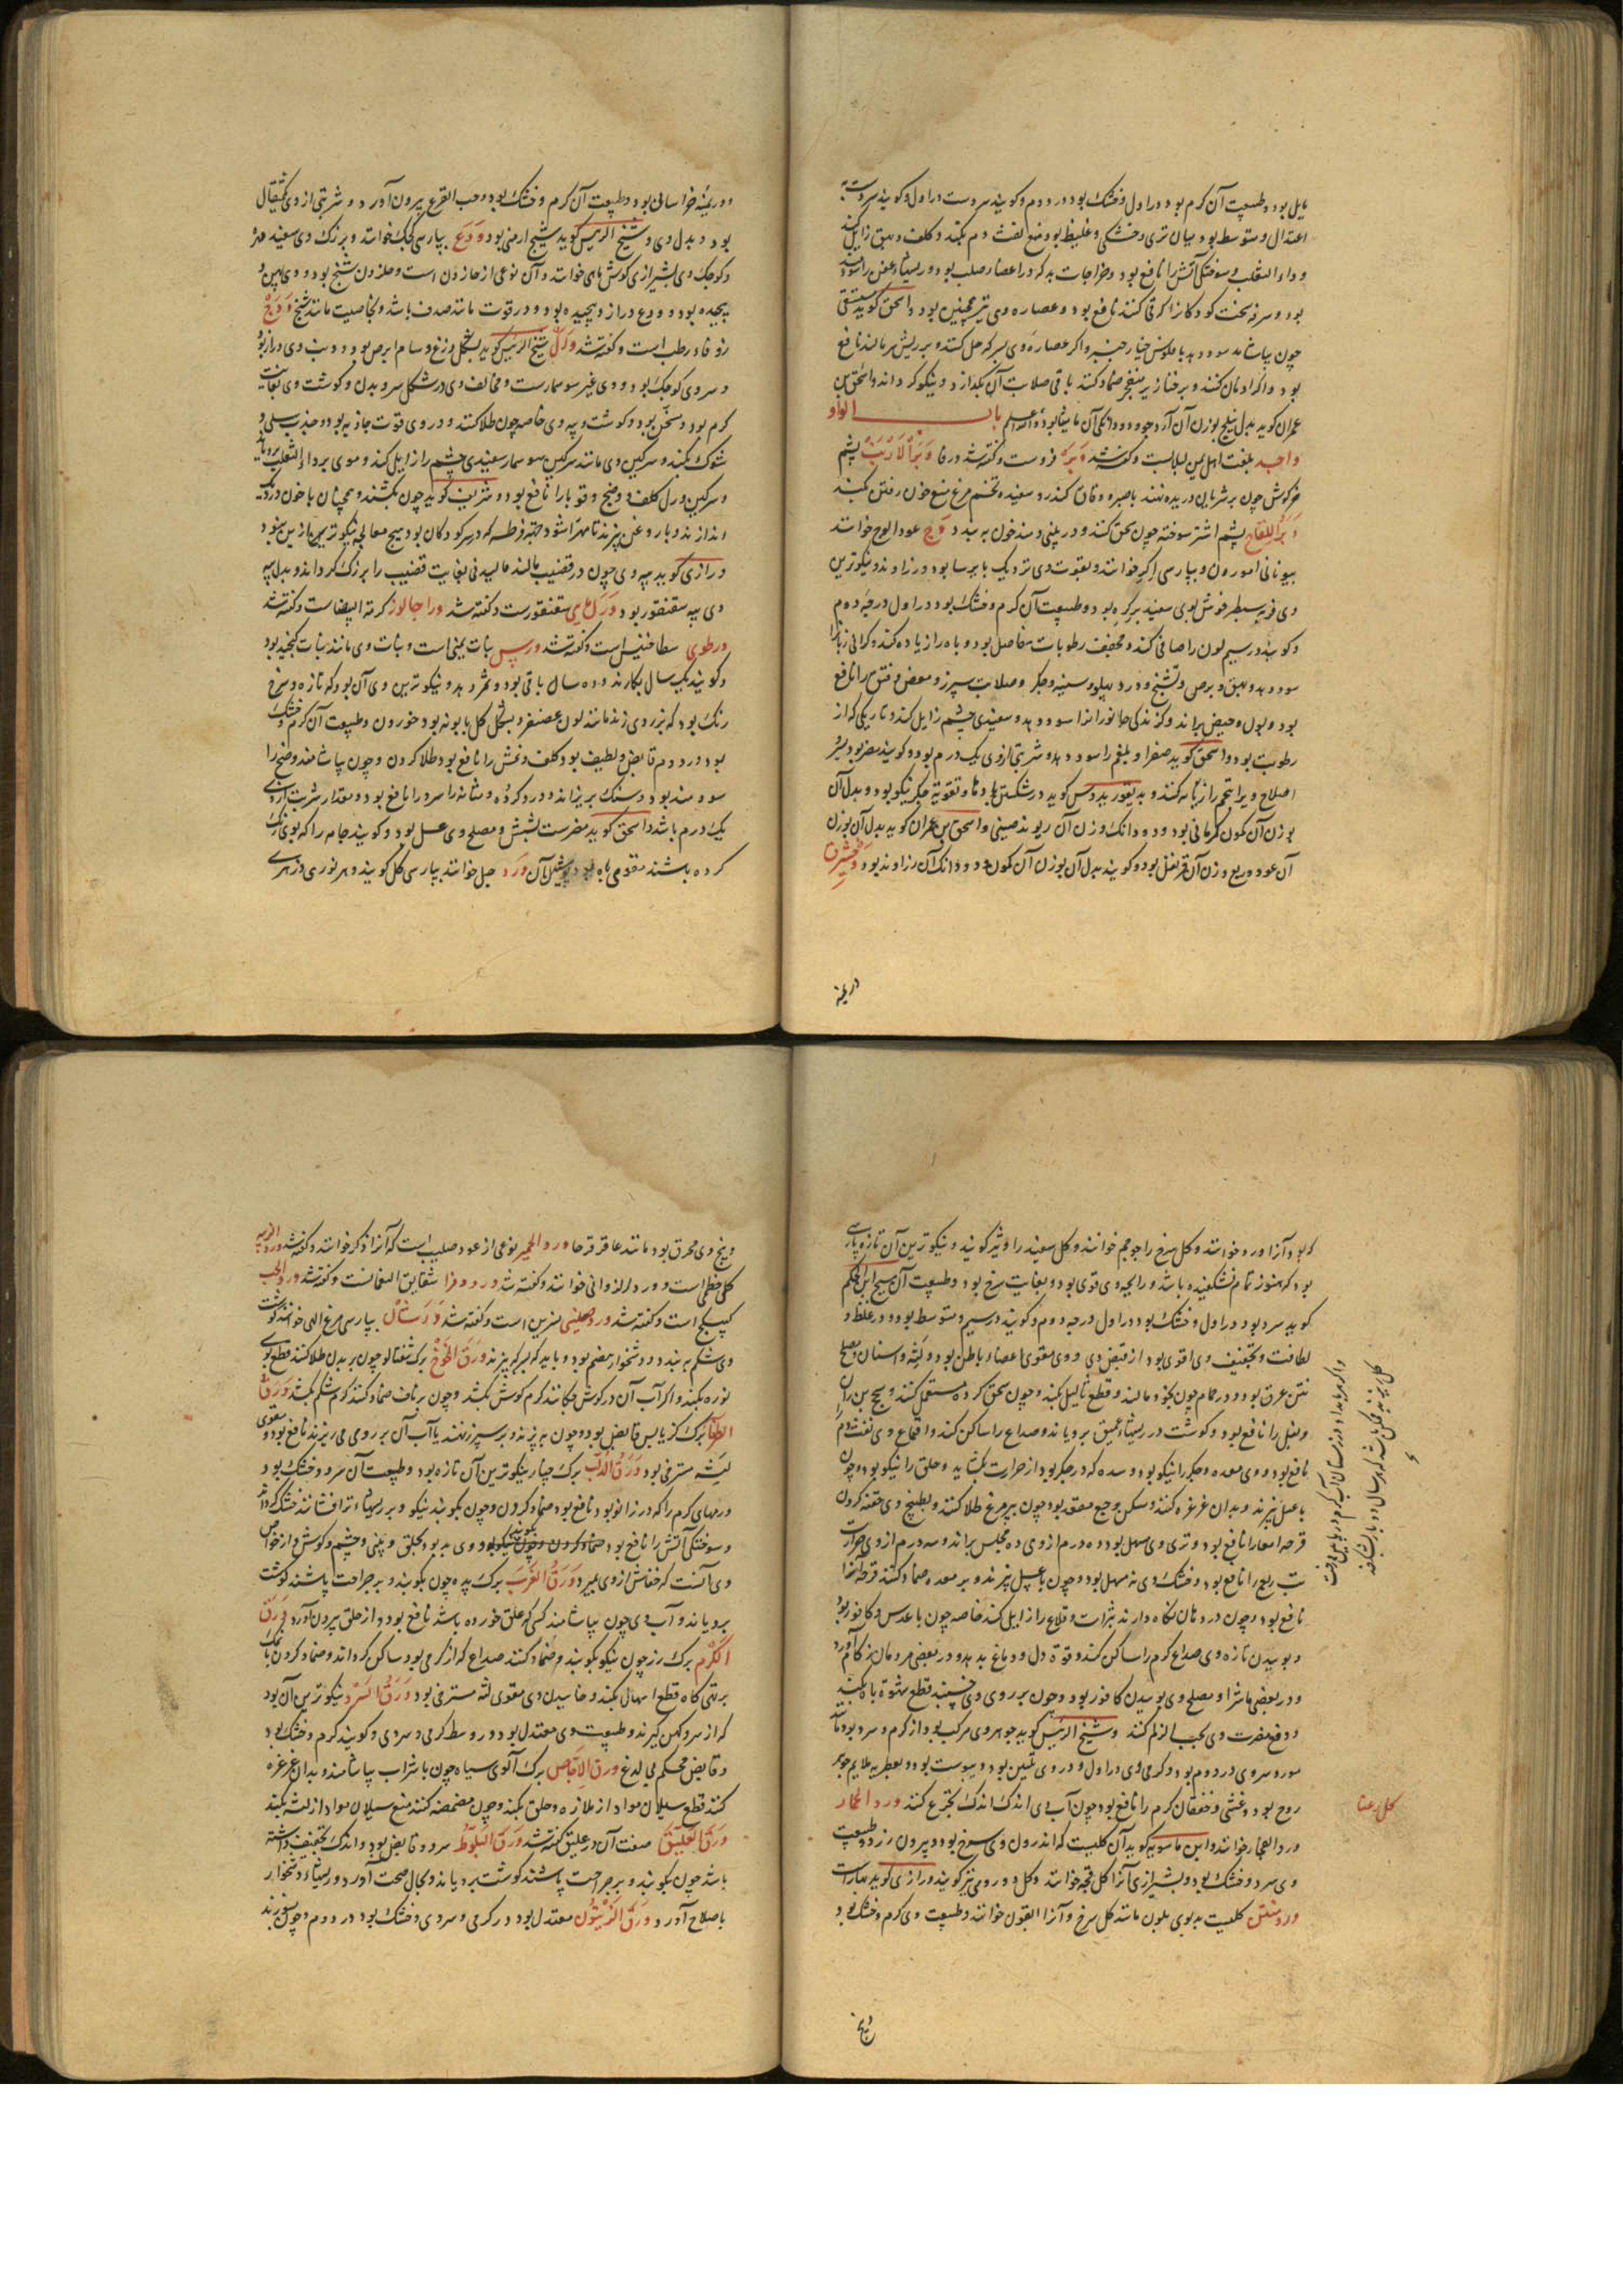 مایل بود و طبیعت آن گرم بود در اول و خشک بود در دوم و گویند سردست در اول و گویند سردست به
اعتدال و متوسط بود میان تری و خشکی و غلیظ بود منع نفث دم بکند و کلف و بهق زایل کند
و داء الثعلب و سوختگی آتش را نافع بود و خراجات بد که در اعضاء صلب بود و ریشهاء عفن را سود
بود و سرفه سخت کودکان را که قی کنند نافع بود و عصاره وی نیز همچنین بود و اسحق گوید
چون بیاشامند سود دهد با فلوس خیار چنبر و اگر عصاره وی بسرکه حل کنند و بر ریش سر مالند نافع
بود و اگر ادمان کنند و بر خنازیر منفجر ضماد کنند باقی صلابت آن بگدازد و نیکو گرداند و اسحق بن
عمران گوید بدل نیلج بوزن آن آرد جو و دو دانگ آن مامیثا بود والله اعلم باب الواو
واجد بلغت اهل یمن لبلابست و گفته شد وبره فروست و گفته شد در فا وبر الارنب پشم
خرگوش چون بر شریان دریده نهند با صبر و دقاق کندر و سفیده تخم مرغ منع خون رفتن بکند
وبر اللقاح پشم اشتر سوخته چون سحق کنند و در بینی دمند خون ببندد وج عود الوج خوانند
بیونانی امورون و بپارسی اگر خوانند و بقوت وی نزدیک بایرسا بود و زراوند و نیکوترین
وی فربه سطبر خوش بوی سفید پر گره بود و طبیعت آن گرم و خشک بود در اول درجه دوم
و گویند در سیم لون را صافی کند و مجفف رطوبات مفاصل بود و باه را زیاده کند و گرانی زبان را
سود دهد و بهق و برص و تشنج و درد پهلو و سینه و جگر و صلابت سپرز و مغص و فتق را نافع
بود و بول و حیض براند و گزندگی جانوران را سود دهد و سفیدی چشم زایل کند و تاریکی که از
رطوبت بود و اسحق گوید صفرا و بلغم را سود دهد و شربتی از وی یک درم بود و گویند مضر بود بسر
اصلاح ویرا تخم رازیانه کنند و دیسقوریدوس گوید در شکستن بادها و تقویة جگر نیکو بود و بدل آن
بوزن آن کمون کرمانی بود و دو دانگ وزن آن ریوند صینی و اسحق بن عمران گوید بدل آن بوزن
آن عود و ربع وزن آن قرنفل بود و گویند بدل آن بوزن آن کمون و دو دانگ آن زراوند بود وخشیرق
درمنه
و درمنه خراسانی بود و طبیعت آن گرم و خشک بود و حب القرع بیرون آورد و شربتی از وی مثقال
بود و بدل وی و شیخ الرئیس گوید شیح ارمنی بود ودع بپارسی کجک خوانند و بزرگ وی سفید مهره
و کوچک وی بشیرازی گوش ماهی خوانند و آن نوعی از حلزون است و حلزون شنج بود و وی پهن و
پیچیده بود و ودع دراز و پیچیده بود و در قوت مانند صدف باشد و بخاصیت مانند شنج ودح
زوفاء رطب است و گفته شد ورل شیخ الرئیس گوید بشکل وزغ و سام ابرص بود و دنب وی دراز بود
و سر وی کوچک بود و وی غیر سوسمارست و مخالف وی در شکل سر و بدن و گوشت وی بغایت
گرم بود و مسخن بود و گوشت و پیه وی خاصه چون طلا کنند و در وی قوت جاذبه بود و جذب سلی و
شوک بکند و سرگین وی مانند سرگین سوسمار سفیدی چشم را زایل کند و موی بر داء الثعلب برویاند
و سرگین ورل کلف و وضح و قوبا را نافع بود و شریف گوید چون بکشند و همچنان با خون در دیگ
اندازند و با روغن بپزند تا مهرا شود جهت قرطسه که در سر کودکان بود هیچ معالجه نیکوتر ازین نبود
و رازی گوید پیه وی چون در قضیب مالند مالیدنی بغایت قضیب را بزرگ گرداند و بدل پیه
وی پیه سقنقور بود ورل مایی سقنقورست و گفته شد وراجالوز کرمة البیضاست و گفته شد
ورطوی سطاخینس است و گفته شد ورس نبات یمنی است و نبات وی مانند نبات کنجد بود
و گویند یک سال بکارند و ده سال باقی بود و ثمر دهد و نیکوترین وی آن بود که تازه و سرخ
رنگ بود که بزردی زند مانند لون عصفر و بشکل گل بابونه بود خورون و طبیعت آن گرم و خشک
بود در دوم قابض و لطیف بود کلف و نمش را نافع بود طلا کردن و چون بیاشامند وضح را
سودمند بود و سنگ بریزاند و درد گرده و مثانه سرد را نافع بود و مقدار شربت از وی
یک درم باشد و اسحق گوید مضرست بشش و مصلح وی عسل بود و گویند جامه را که بوی رنگ
کرده باشند مقوی باه بود پوشیدن آن ورد جل خوانند بپارسی گل گویند و هر نوری و زهری
که بود آنرا ورد خوانند و گل سرخ را حوجم خوانند و گل سفید را وتیر گویند و نیکوترین آن تازه پارسی
بود که هنوز تمام نشکفیده باشد و رایحه وی قوی بود و بغایت سرخ بود و طبیعت آن مسیح ابن حکم
گوید سرد بود در اول و خشک بود در اول درجه دوم و گویند در سیم و متوسط بود در غلظ و
لطافت و تجفیف وی اقوی بود از قبض وی و وی مقوی اعضاء باطن بود و لثه و اسنان و مصلح
نتن عرق بود و در حمام چون بخود مالند و قطع ثالیل بکند چون سحق کرده مستعمل کنند و سحج بین ران
و بغل را نافع بود و گوشت در ریشهاء عمیق برویاند و صداع را ساکن کند و اقماع وی نفث دم را
نافع بود و وی معده و جگر را نیکو بود و سده که در جگر بود از حرارت بگشاید و حلق را نیکو بود چون
با عسل بپزند و بدان غرغره کنند و مسکن وجع مقعد بود چون بپر مرغ طلا کنند و بطبیخ وی حقنه کردن
قرحه امعا را نافع بود و تری وی مسهل بود و ده درم از وی ده مجلس براند و سه درم از وی حرارت
تب ربع را نافع بود و خشک وی نه مسهل بود و چون با عسل بپزند و بر معده ضماد کنند قرحه امعا را
نافع بود و چون در دهان نگاه دارند بثرات و قلاع را زایل کند خاصه چون با عدس و کافور بود
و بوییدن تازه وی صداع گرم را ساکن کند و قوة دل و دماغ بدهد و در بعضی مردمان زکام آورد
و در بعضی ماشرا و مصلح وی بوییدن کافور بود و چون بر روی وی خسبند قطع شهوة باه بکند
و دفع مضرت وی بحب الزلم کنند و شیخ الرئیس گوید جوهر وی مرکب بود از گرم و سرد بود مانند
مورد و سردی در دوم بود و گرمی وی در اول و در وی تلیین بود و یبوست بود و بعطریه ملایم جوهر
روح بود و غشی و خفقان گرم را نافع بود چون آب وی اندک اندک تجرع کنند ورد الحمار
ورد الفجار خوانند و ابن ماسویه گوید آن گلیست که اندرون وی سرخ بود و بیرون زرد و طبیعت
وی سرد و خشک بود و بشیرازی آنرا گل قحبه خوانند و گل دو روی نیز گویند و رازی گوید بهارست
ورد منتن گلیست بدبوی بلون مانند گل سرخ و آنرا القوف خوانند و طبیعت وی گرم و خشک بود
گل رعنا
وبیخ
و بیخ وی محرق بود مانند عاقرقرحا ورد الحمیر نوعی از عود صلیب است که آنرا ذکر خوانند و گفته شد ورد الزینه
گل خطمی است و ورد الزوانی خوانند و گفته شد ورد مزا شقایق النعمانست و گفته شد ورد الحب
کبیکج است و گفته شد ورد صینی نسرین است و گفته شد ورشان بپارسی مرغ الهی خوانند گوشت
وی شکم ببندد و دشخوار هضم بود و باید که بسرکه پزند ورق الخوخ برگ شفتالو چون بر بدن طلا کنند قطع بوی
نوره بکند و اگر آب آن در گوش چکانند کرم گوش بکشد و چون بر ناف ضماد کنند کرم شکم بکشد ورق
الطرفا برگ گز یابس قابض بود چون بپزند و بر سپرز نهند یا آب آن بر روی می ریزند نافع بود و مقوی
لثه مسترخی بود ورق الدلب برگ چنار نیکوترین آن تازه بود و طبیعت آن سرد و خشک بود
ورمهای گرم را که در زانو بود نافع بود ضماد کردن و چون بکوبند نیکو و بر ریشهاء تر افشانند خشک گرداند
و سوختگی آتش را نافع بود و وی بد بود بحلق و بینی و چشم و گوش و از خواص
وی آنست که خفاش از وی بمیرد ورق الغرب برگ پده چون بکوبند و بر جراحت پاشند گوشت
برویاند و آب وی چون بیاشامند کسی که علق خورده باشد نافع بود و از حلق بیرون آورد ورق
الکرم برگ رز چون نیکو بکوبند و ضماد کنند صداع که از گرمی بود ساکن گرداند و ضماد کردن با نمک
بر تهیگاه قطع اسهال بکند و خاییدن وی مقوی لثه مسترخی بود ورق السرو نیکوترین آن بود
که از سرو کهن گیرند و طبیعت وی معتدل بود در وسط گرمی و سردی و گویند گرم و خشک بود
و قابض محکم بی لذع ورق الاجاص برگ آلوی سیاه چون با شراب بیاشامند و بدان غرغره
کنند قطع سیلان مواد از ملازه و حلق بکند و چون مضمضه کنند منع سیلان مواد از لثه بکند
ورق العلیق صفت آن در علیق گفته شد ورق البلوط سرد و قابض بود و اندک تجفیف داشته
باشد چون بکوبند و بر جراحت پاشند گوشت برویاند و بحال صحت آورد و ریشهاء دشخوار
باصلاح آورد ورق الزیتون معتدل بود در گرمی و سردی و خشک بود در دوم و چون بسوزند